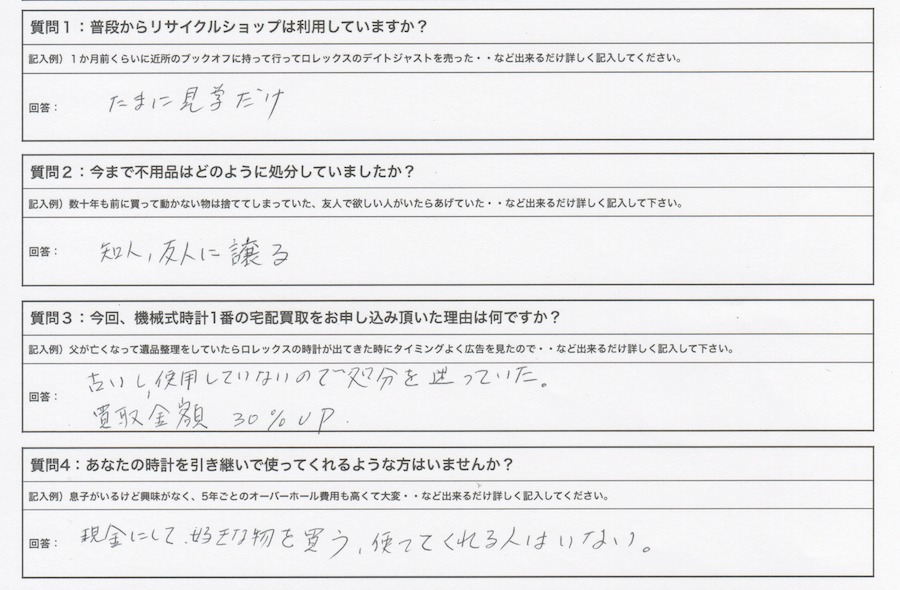 質問1：普段からリサイクルショップは利用していますか？
記入例）１か月前くらいに近所のブックオフに持って行ってロレックスのデイトジャストを売った・・など出来るだけ詳しく記入してください。
回答： たまに見学だけ
質問2：今まで不用品はどのように処分していましたか？
記入例）数十年も前に買って動かない物は捨ててしまっていた、友人で欲しい人がいたらあげていた・・など出来るだけ詳しく記入して下さい。
回答： 知人,友人に譲る
質問3：今回、機械式時計1番の宅配買取をお申し込み頂いた理由は何ですか？
記入例）父が亡くなって遺品整理をしていたらロレックスの時計が出てきた時にタイミングよく広告を見たので・・など出来るだけ詳しく記入して下さい。
回答： 古いし,使用していないので処分を迷っていた。
買取金額 30%UP.
質問4：あなたの時計を引き継いで使ってくれるような方はいませんか？
記入例）息子がいるけど興味がなく、5年ごとのオーバーホール費用も高くて大変・・など出来るだけ詳しく記入してください。
回答： 現金にして、好きな物を買う,使ってくれる人はいない。